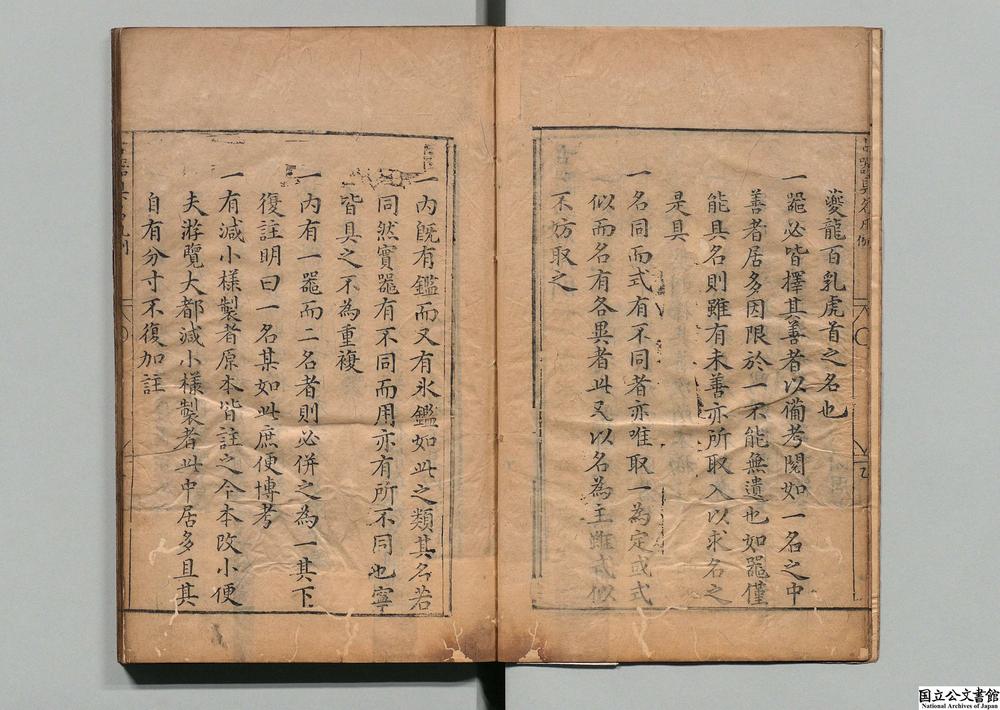 夔龍百乳虎首之名也
一噐必皆擇其善者以備考閱如一名之中
善者居多因限於一不能無遺也如噐僅
能具名則雖有未善亦所取入以求名之
是具
一名同而式有不同者亦唯取一為定或式
似而名有各異者此又以名為主雖式似
不妨取之
一內旣有鑑而又有氷鑑如此之類其名若
同然實噐有不同而用亦有所不同也寧
皆具之不為重複
一內有一噐而二名者則必併之為一其下
復註明曰一名某如此庶便博考
一有減小樣製者原本皆註之今本改小便
夫游覽大都減小樣製者此中居多且其
自有分寸不復加註
国立公文書館
National Archives of Japan